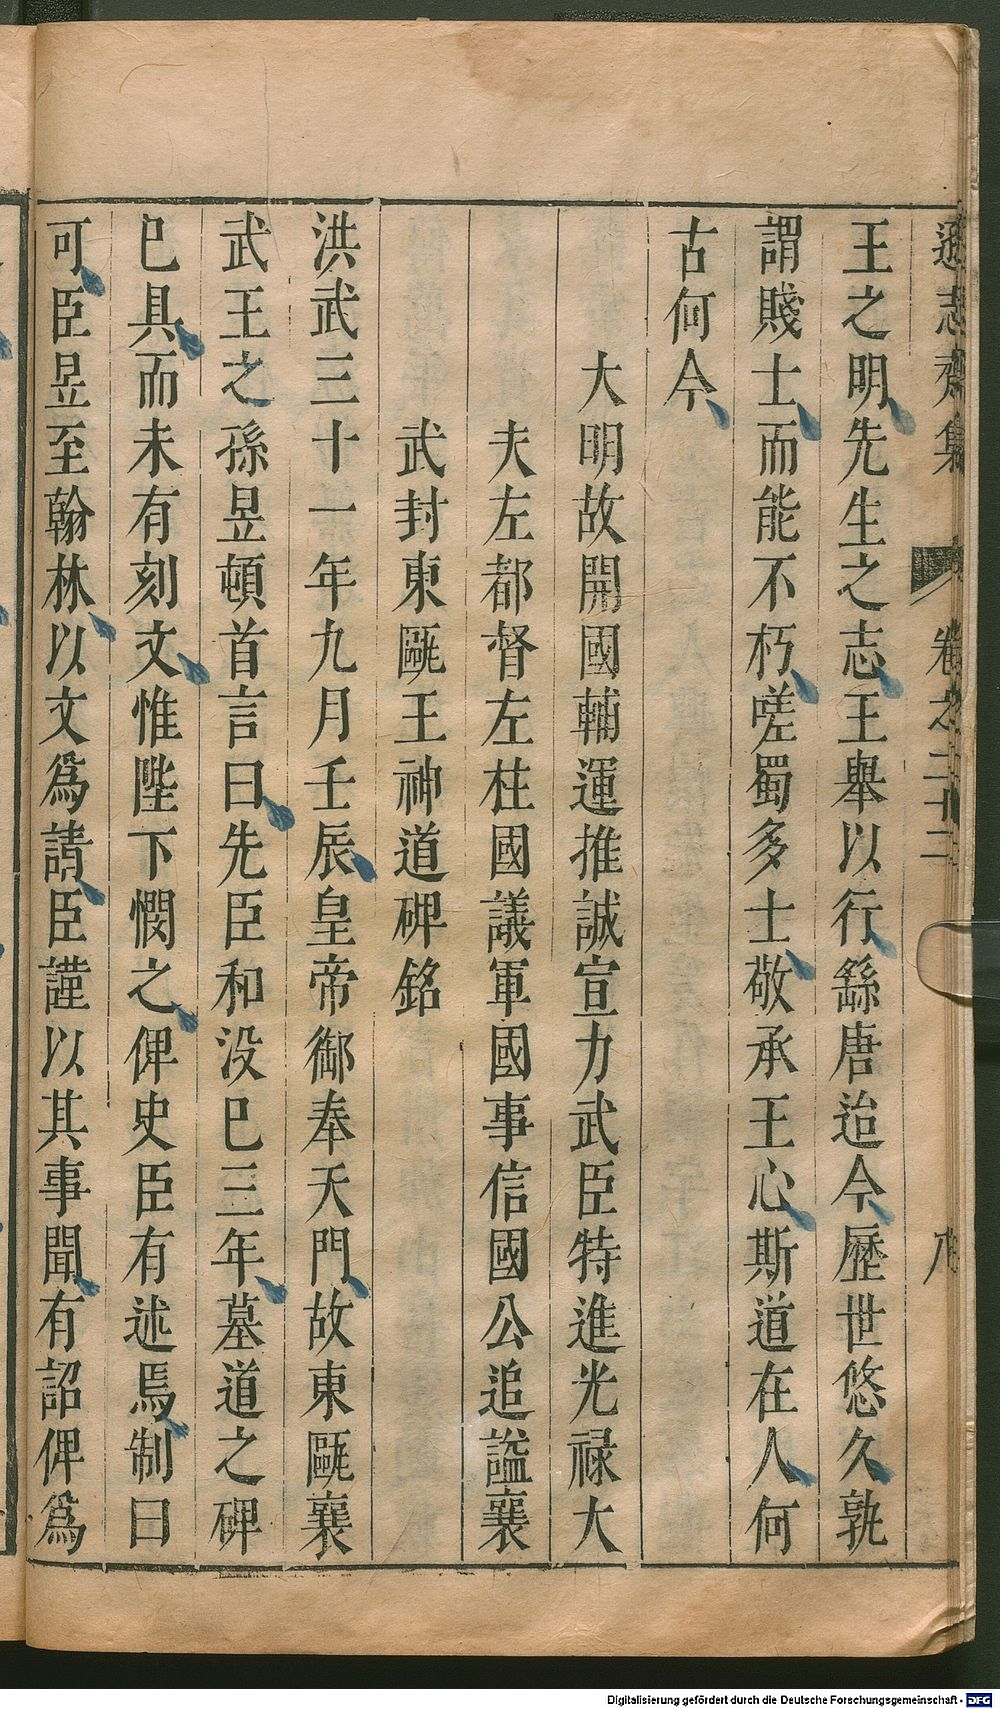 遜志齋集 卷之二十二 八
王之明先生之志王舉以行繇唐迨今歷世悠久孰
謂賤士而能不朽嗟蜀多士敬承王心斯道在人何
古何今
大明故開國輔運推誠宣力武臣特進光祿大
夫左都督左柱國議軍國事信國公追謚襄
武封東甌王神道碑銘
洪武三十一年九月壬辰皇帝御奉天門故東甌襄
武王之孫昱頓首言曰先臣和没已三年墓道之碑
已具而未有刻文惟陛下憫之俾史臣有述焉制曰
可臣昱至翰林以文為請臣謹以其事聞有詔俾為
Digitalisierung gefördert durch die Deutsche Forschungsgemeinschaft - DFG